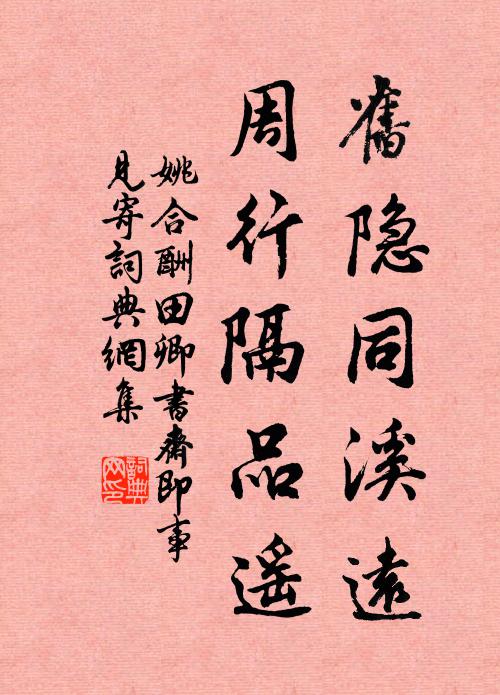 舊隐同溪遠
周行隔品遥
姚合酬田卿書齋即事
見寄詞典網集
詞典網印